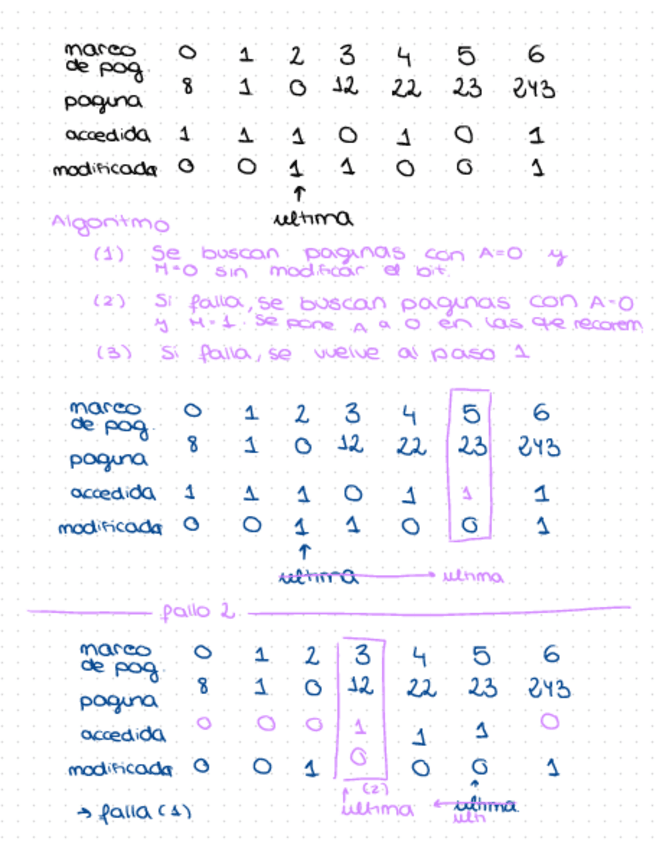 marco de pag. 0 1 2 3 4 5 6
pagina 8 1 0 12 22 23 243
accedida 1 1 1 0 1 0 1
modificada 0 0 1 1 0 0 1
↑
ultima
Algoritmo
(1) Se buscan paginas con A=0 y
M=0 sin modificar el bit.
(2) Si falla, se buscan paginas con A=0
y M=1. Se pone A a 0 en las que recorem
(3) Si falla, se vuelve al paso 1
marco de pag. 0 1 2 3 4 5 6
pagina 8 1 0 12 22 23 243
accedida 1 1 1 0 1 1 1
modificada 0 0 1 1 0 0 1
↑
ultima → ultima
fallo 2
marco de pag. 0 1 2 3 4 5 6
pagina 8 1 0 12 22 23 243
accedida 0 0 0 1 1 1 0
modificada 0 0 1 0 0 0 1
→ falla (1) ↑ (2) ultima ← ultima
ulti